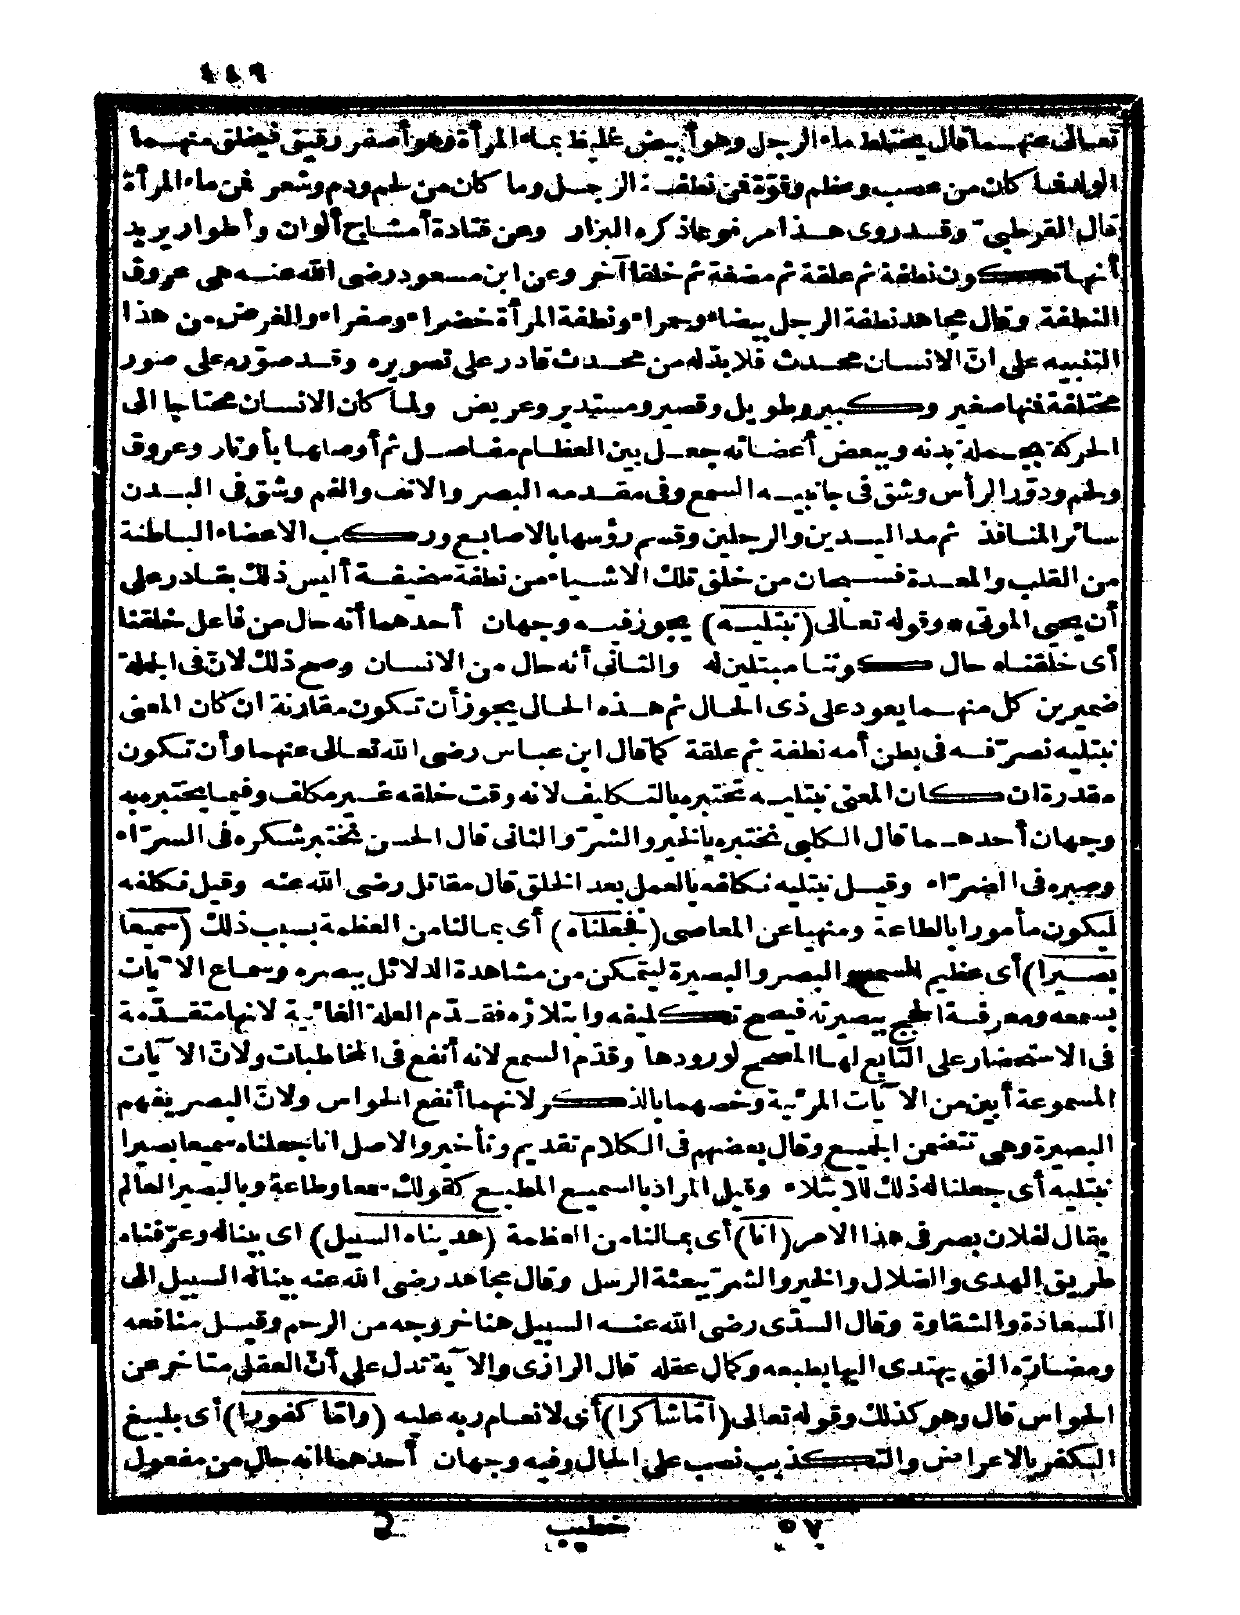 ٤٤٩
تعالى عنهما قال يختلط ماء الرجل وهو أبيض غليظ بماء المرأة وهو أصفر رقيق فيخلق منهما
الولد فما كان من عصب وعظم وقوّة فن نطفة الرجل وما كان من لحم ودم وشعر فن ماء المرأة
قال القرطبي وقد روى هذا مرفوعا ذكره البزار وعن قتادة أمشاج ألوان وأطوار يريد
أنها تكون نطفة ثم علقة ثم مضغة ثم خلقا آخر وعن ابن مسعود رضى الله عنه هى عروق
النطفة وقال مجاهد نطفة الرجل بيضاء وحمراء ونطفة المرأة خضراء وصفراء والغرض من هذا
التنبيه على انّ الانسان محدث فلا بدّ له من محدث قادر على تصويره وقد صوّره على صور
مختلفة فنها صغير وكبير وطويل وقصير ومستدير وعريض ولما كان الانسان محتاجا الى
الحركة بجملة بدنه وببعض أعضائه جعل بين العظام مفاصل ثم أوصلها بأوتار وعروق
ولحم ودوّر الرأس وشق فى جانبيه السمع وفى مقدمه البصر والانف والفم وشق فى البدن
سائر المنافذ ثم مد اليدين والرجلين وقسم رؤسها بالاصابع وركب الاعضاء الباطنة
من القلب والمعدة فسبحان من خلق تلك الاشياء من نطفة ضعيفة أليس ذلك بقادر على
أن يحيى الموتى * وقوله تعالى (نبتليه) يجوز فيه وجهان أحدهما أنه حال من فاعل خلقنا
أى خلقناه حال كوننا مبتلين له والثانى أنه حال من الانسان وصح ذلك لانّ فى الجملة
ضميرين كل منهما يعود على ذى الحال ثم هذه الحال يجوز أن تكون مقارنة ان كان المعنى
نبتليه نصرّفه فى بطن أمه نطفة ثم علقة كما قال ابن عباس رضى الله تعالى عنهما وأن تكون
مقدرة ان كان المعنى نبتليه نختبره بالتكليف لانه وقت خلقه غير مكلف وفيما يختبر به
وجهان أحدهما قال الكلبى نختبره بالخير والشرّ والثانى قال الحسن نختبر شكره فى السرّاء
وصبره فى الضرّاء وقيل نبتليه نكلفه بالعمل بعد الخلق قال مقاتل رضى الله عنه وقيل نكلفه
ليكون مأمورا بالطاعة ومنهيا عن المعاصى (فجعلناه) أى بما لنا من العظمة بسبب ذلك (سميعا
بصيرا) أى عظيم السمع والبصر والبصيرة ليتمكن من مشاهدة الدلائل ببصره وسماع الآيات
بسمعه ومعرفة الحجج ببصيرته فيصح تكليفه وابتلاؤه فقدّم العلة الغائية لانها متقدّمة
فى الاستحضار على التابع لها المصحح لورودها وقدّم السمع لانه أنفع فى المخاطبات ولانّ الآيات
المسموعة أبين من الآيات المرئية وخصهما بالذكر لانهما أنفع الحواس ولانّ البصر يفهم
البصيرة وهى تتضمن الجميع وقال بعضهم فى الكلام تقديم وتأخير والاصل انا جعلناه سميعا بصيرا
نبتليه أى جعلنا له ذلك للابتلاء وقيل المراد بالسميع المطيع كقولك سمعا وطاعة وبالبصير العالم
يقال لفلان بصر فى هذا الامر (انا) أى بما لنا من العظمة (هديناه السبيل) اى بينا له وعرّفناه
طريق الهدى والضلال والخير والشرّ ببعثة الرسل وقال مجاهد رضى الله عنه بينا له السبيل الى
السعادة والشقاوة وقال السدّى رضى الله عنه السبيل هنا خروجه من الرحم وقيل منافعه
ومضارّه التى يهتدى اليها بطبعه وكمال عقله قال الرازى والآية تدل على أنّ العقل متأخر عن
الحواس قال وهو كذلك وقوله تعالى (امّا شاكرا) أى لانعام ربه عليه (وامّا كفورا) أى بليغ
الكفر بالاعراض والتكذيب نصب على الحال وفيه وجهان أحدهما انه حال من مفعول
٥٧ خطيب